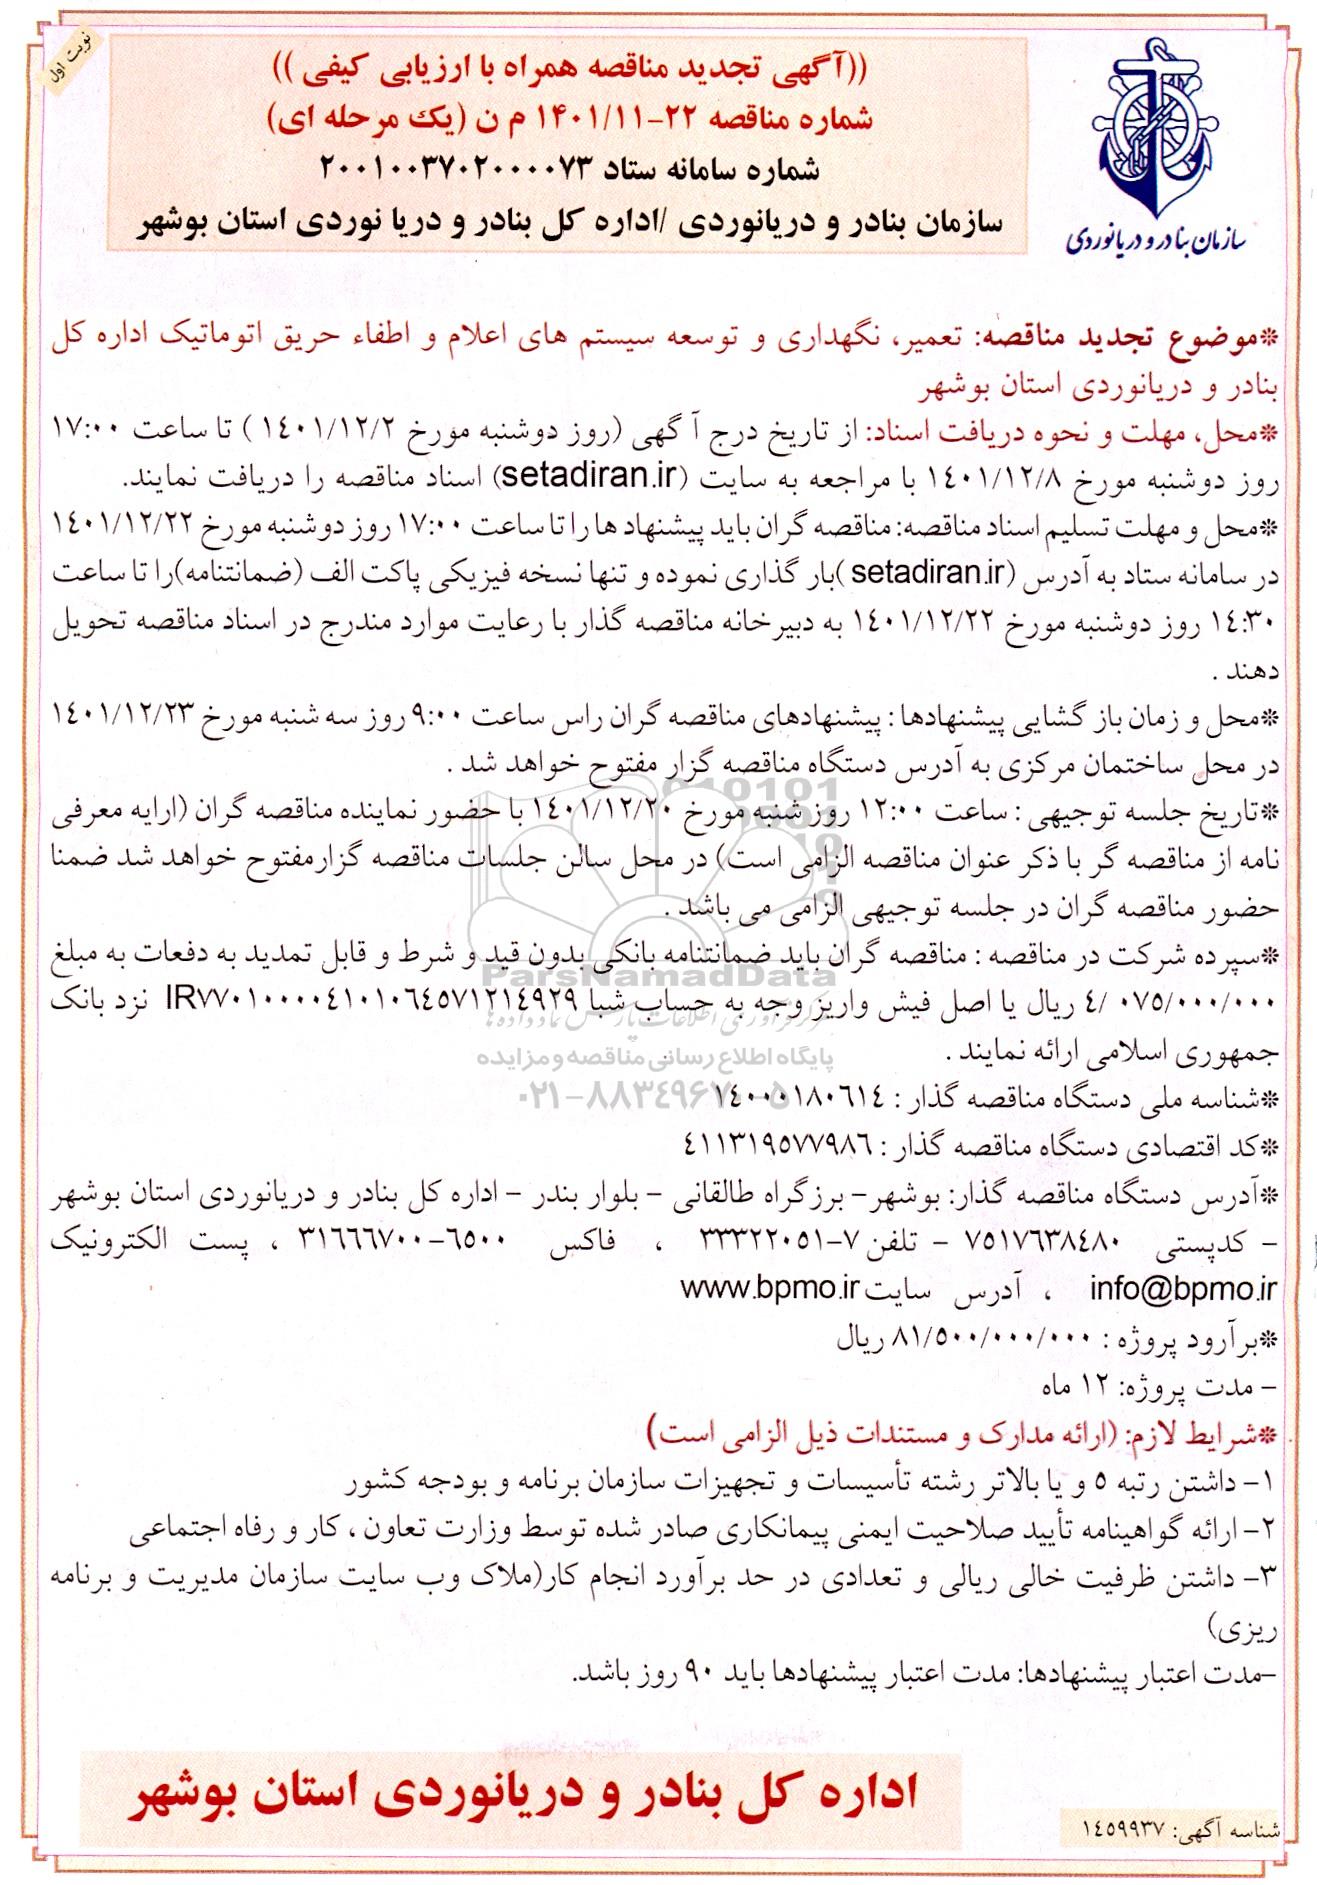 نوبت اول
((آگهی تجدید مناقصه همراه با ارزیابی کیفی ))
شماره مناقصه ۲۲-۱۴۰۱/۱۱ م ن (یک مرحله ای)
شماره سامانه ستاد ۲۰۰۱۰۰۳۷۰۲۰۰۰۰۷۳
سازمان بنادر و دریانوردی /اداره کل بنادر و دریا نوردی استان بوشهر
سازمان بنادر و دریانوردی
*موضوع تجدید مناقصه: تعمیر، نگهداری و توسعه سیستم های اعلام و اطفاء حریق اتوماتیک اداره کل
بنادر و دریانوردی استان بوشهر
*محل، مهلت و نحوه دریافت اسناد: از تاریخ درج آ گهی (روز دوشنبه مورخ ۱۴۰۱/۱۲/۲ ) تا ساعت ۱۷:۰۰
روز دوشنبه مورخ ۱۴۰۱/۱۲/۸ با مراجعه به سایت (setadiran.ir) اسناد مناقصه را دریافت نمایند.
*محل و مهلت تسلیم اسناد مناقصه: مناقصه گران باید پیشنهاد ها را تا ساعت ۱۷:۰۰ روز دوشنبه مورخ ۱۴۰۱/۱۲/۲۲
در سامانه ستاد به آدرس (setadiran.ir )بار گذاری نموده و تنها نسخه فیزیکی پاکت الف (ضمانتنامه)را تا ساعت
۱۴:۳۰ روز دوشنبه مورخ ۱۴۰۱/۱۲/۲۲ به دبیرخانه مناقصه گذار با رعایت موارد مندرج در اسناد مناقصه تحویل
دهند .
*محل و زمان باز گشایی پیشنهادها : پیشنهادهای مناقصه گران راس ساعت ۹:۰۰ روز سه شنبه مورخ ۱۴۰۱/۱۲/۲۳
در محل ساختمان مرکزی به آدرس دستگاه مناقصه گزار مفتوح خواهد شد .
*تاریخ جلسه توجیهی : ساعت ۱۲:۰۰ روز شنبه مورخ ۱۴۰۱/۱۲/۲۰ با حضور نماینده مناقصه گران (ارایه معرفی
نامه از مناقصه گر با ذکر عنوان مناقصه الزامی است) در محل سالن جلسات مناقصه گزارمفتوح خواهد شد ضمنا
حضور مناقصه گران در جلسه توجیهی الزامی می باشد .
*سپرده شرکت در مناقصه : مناقصه گران باید ضمانتنامه بانکی بدون قید و شرط و قابل تمدید به دفعات به مبلغ
۴/ ۰۷۵/۰۰۰/۰۰۰ ریال یا اصل فیش واریز وجه به حساب شبا IR۷۷۰۱۰۰۰۰۴۱۰۱۰۶۴۵۷۱۲۱۴۹۲۹ نزد بانک
جمهوری اسلامی ارائه نمایند .
ParsNamadData
پایگاه اطلاع رسانی مناقصه و مزایده
۰۲۱-۸۸۳۴۹۶۷۰-۵
*شناسه ملی دستگاه مناقصه گذار : ۱۴۰۰۰۱۸۰۶۱۴
*کد اقتصادی دستگاه مناقصه گذار : ۴۱۱۳۱۹۵۷۷۹۸۶
*آدرس دستگاه مناقصه گذار: بوشهر- برزگراه طالقانی - بلوار بندر - اداره کل بنادر و دریانوردی استان بوشهر
- کدپستی ۷۵۱۷۶۳۸۴۸۰ - تلفن ۷-۳۳۳۲۲۰۵۱ ، فاکس ۶۵۰۰-۳۱۶۶۶۷۰۰ ، پست الکترونیک
info@bpmo.ir ، آدرس سایت www.bpmo.ir
*برآرود پروژه : ۸۱/۵۰۰/۰۰۰/۰۰۰ ریال
- مدت پروژه: ۱۲ ماه
*شرایط لازم: (ارائه مدارک و مستندات ذیل الزامی است)
۱- داشتن رتبه ۵ و یا بالاتر رشته تأسیسات و تجهیزات سازمان برنامه و بودجه کشور
۲- ارائه گواهینامه تأیید صلاحیت ایمنی پیمانکاری صادر شده توسط وزارت تعاون ، کار و رفاه اجتماعی
۳- داشتن ظرفیت خالی ریالی و تعدادی در حد برآورد انجام کار(ملاک وب سایت سازمان مدیریت و برنامه
ریزی)
-مدت اعتبار پیشنهادها: مدت اعتبار پیشنهادها باید ۹۰ روز باشد.
اداره کل بنادر و دریانوردی استان بوشهر
شناسه آگهی: ۱۴۵۹۹۳۷